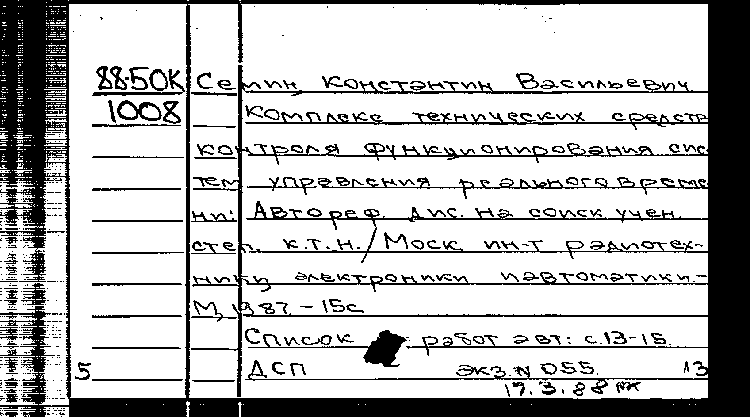 88-50К Семин, Константин Васильевич.
1008 Комплекс технических средств
контроля функционирования сис
тем управления реального време
ни: Автореф. дис. на соиск. учен.
степ. к.т.н. / Моск. ин-т радиотех-
ники, электроники и автоматики.-
М, 1987. - 15с
Список работ авт: с.13-15
5 ДСП экз. N 055 13
17.3.88